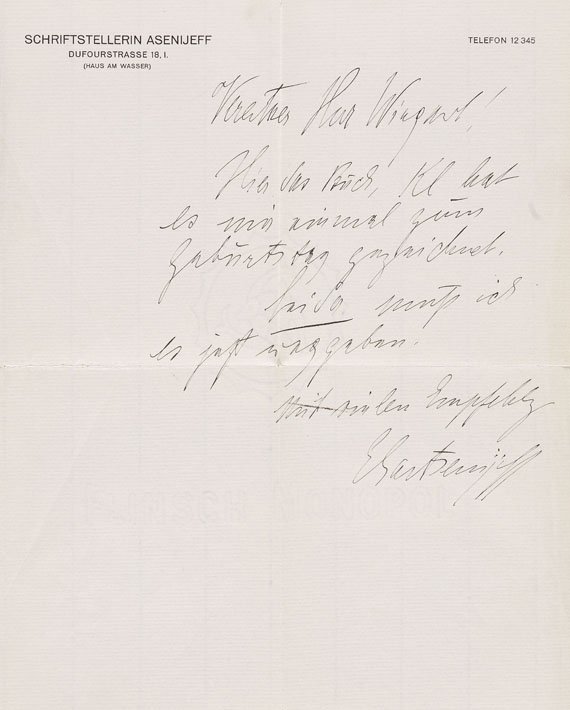 SCHRIFTSTELLERIN ASENIJEFF
DUFOURSTRASSE 18, I.
(HAUS AM WASSER)
TELEFON 12 345
Verehrter Herr Wiegand!
Hier das Buch, Kl hat
es mir einmal zum
Geburtstag gezeichnet.
Leider muß ich
es jetzt weggeben.
Mit vielen Empfehlg
E Asenijeff